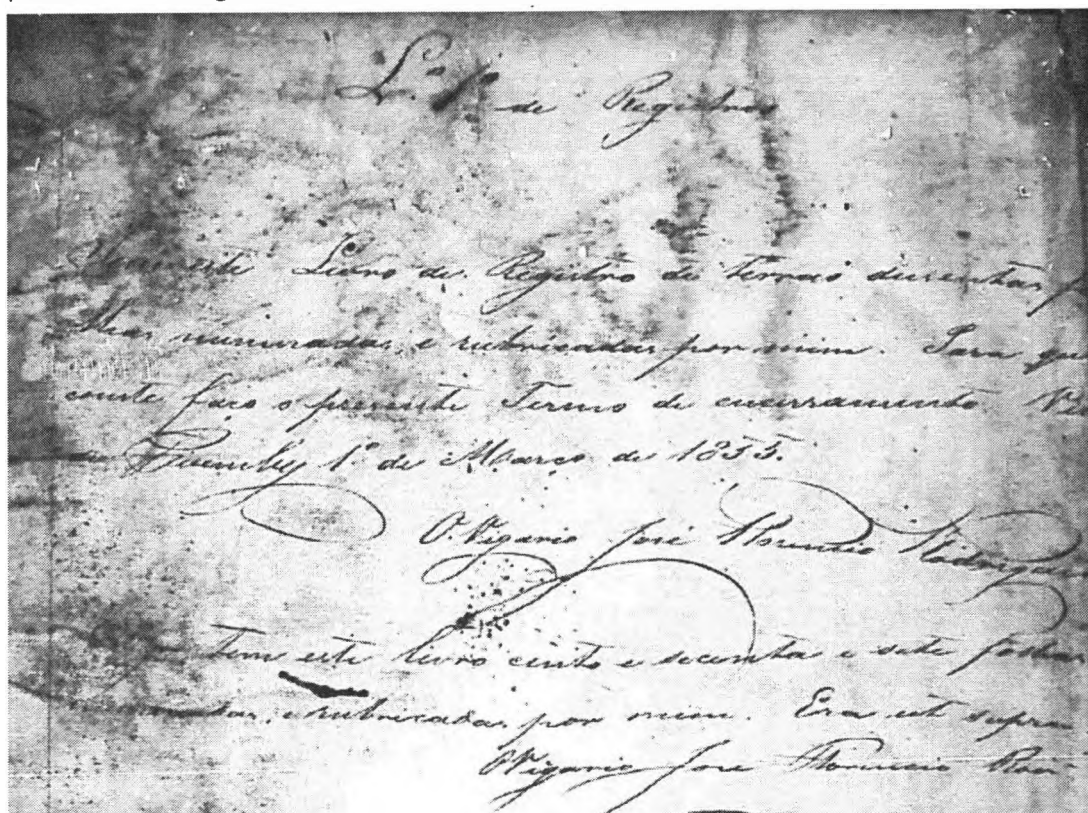 L.º 1º de Registros
este Livro de Registro de terras dusentas
numeradas, e rubricadas por mim. Para que
conste faço o presente Termo de encerramento
1º de Março de 1855.
O Vigario José Florencio Rodrigues
Tem este livro cento e secenta e sete folhas
e rubricadas por mim. Era ut supra
O Vigario José Florencio Rod